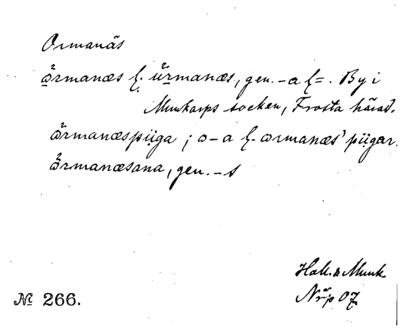 Ormanäs
ǒ̱rmanæs l. ǔ̱rmanæs, gen. -a l=. By i
Munkarps socken, Frosta härad.
ǒrmanæspiiga; o-a l. ormanæs' piigar.
ǒrmanæsana, gen. -s
Hall. o Munk
Nrp 07
№ 266.